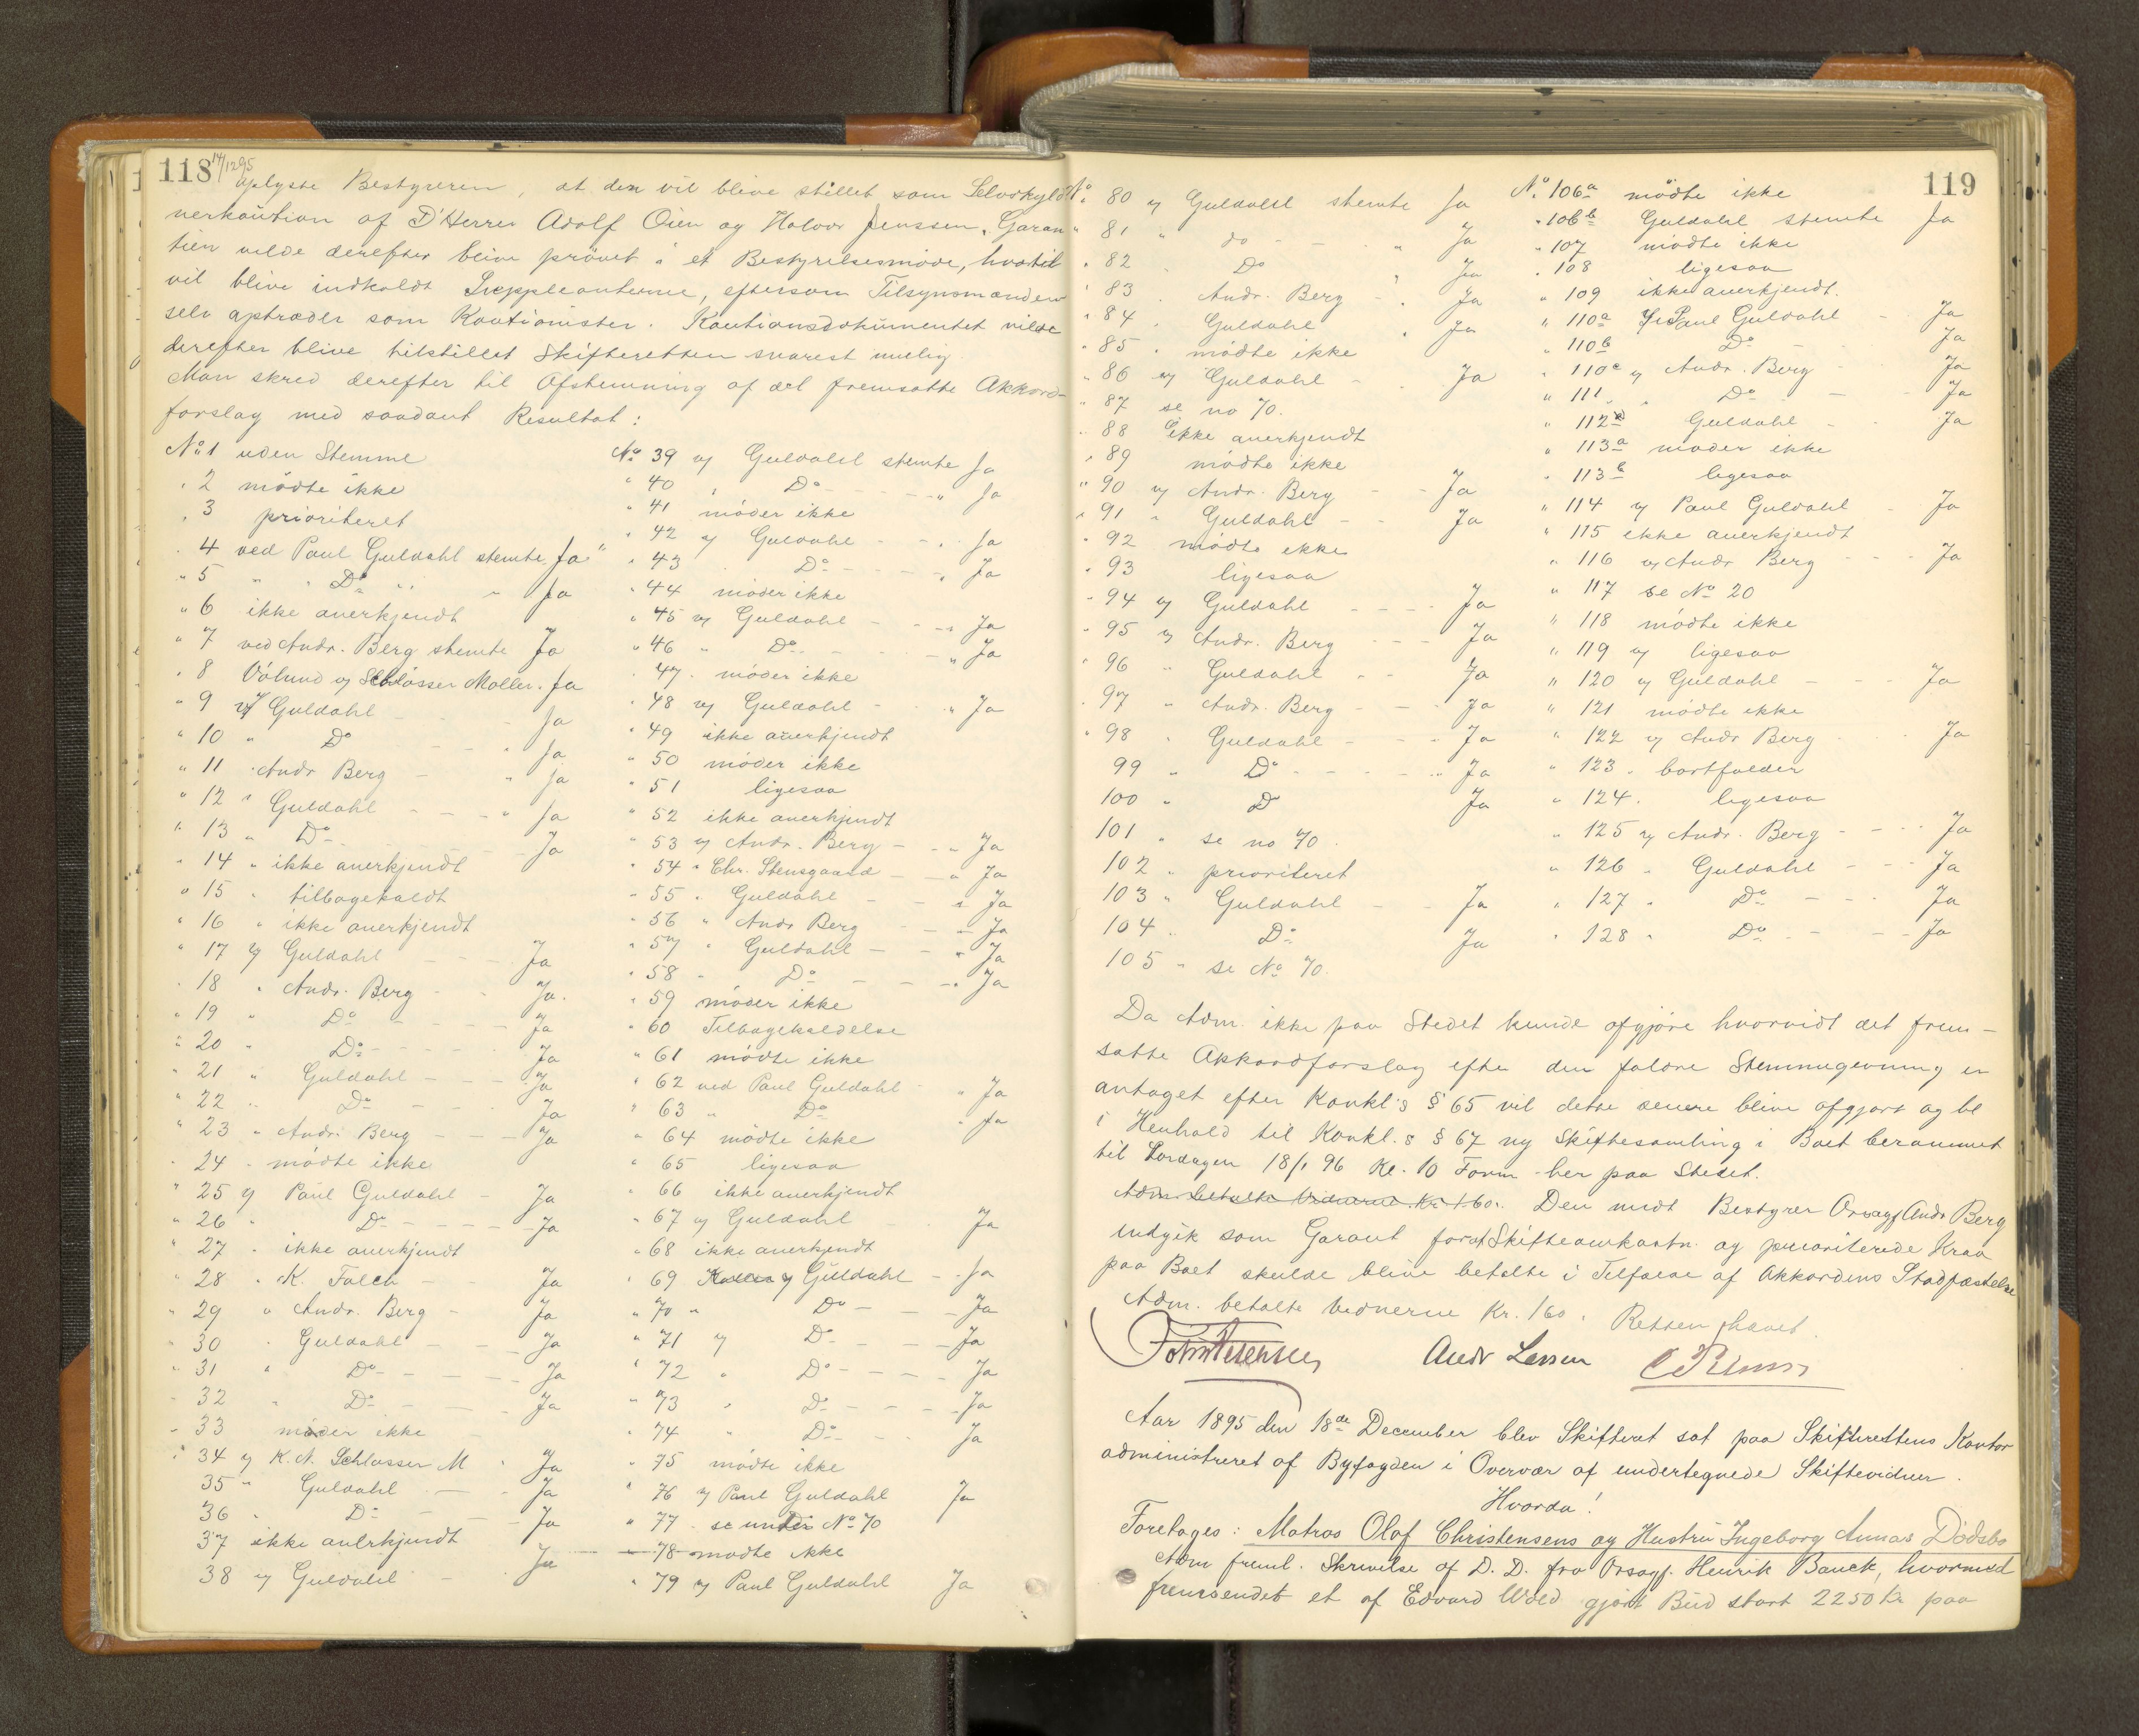 118 14/12 95
oplyste Bestyreren, at den vil blive stillet som Selvskyld
nerkaution af D'Herrer Adolf Öien og Halvor Jenssen. Garan
tien vilde derefter blive prövet i et Bestyrelsesmöde, hvortil
vil blive indkaldt Suppleanterne, eftersom Tilsynsmænden
selv optræder som Kautionister. Kautionsdokumentet vilde
derefter blive tilstillet Skifteretten snarest mulig.
Man skred derefter til Afstemning af det fremsatte Akkord-
forslag med saadant Resultat:
No 1 uden Stemme
" 2 mödte ikke
" 3 prioriteret
" 4 ved Paul Guldahl stemte Ja
" 5 " " Do " " Ja
" 6 ikke anerkjendt
" 7 ved Andr. Berg stemte Ja
" 8 Völund v/ Schlösser Möller " Ja
" 9 v/ Guldahl - - Ja
" 10 " Do - - " Ja
" 11 " Andr Berg - " Ja
" 12 " Guldahl - - " Ja
" 13 " Do - - Ja
" 14 " ikke anerkjendt
" 15 " tilbagekaldt
" 16 " ikke anerkjendt
" 17 v/ Guldahl - - Ja
" 18 " Andr. Berg - - Ja.
" 19 " Do - - Ja
" 20 " Do - - - Ja
" 21 " Guldahl - - - Ja
" 22 " Do - - Ja
" 23 " Andr. Berg - - - Ja
" 24 " mödte ikke
" 25 v/ Paul Guldahl - Ja
" 26 " Do - - - - Ja
" 27 " ikke anerkjendt
" 28 " K. Falch - - Ja
" 29 " Andr. Berg - Ja
" 30 " Guldahl - - Ja
" 31 " Do - - - - Ja
" 32 " Do - - Ja
" 33 möder ikke
" 34 v/ K. A. Schlösser M " Ja
35 " Guldahl - - Ja
36 " Do - - Ja
37 ikke anerkjendt
38 v/ Guldahl - Ja
No 39 v/ Guldahl stemte Ja
" 40 " Do - - - " Ja
" 41 möder ikke
" 42 v/ Guldahl - - " Ja
" 43 " Do - - - " Ja
" 44 möder ikke
" 45 v/ Guldahl - - " Ja
" 46 " Do - - - " Ja
" 47 " möder ikke
" 48 v/ Guldahl - " Ja
" 49 ikke anerkjendt
" 50 möder ikke
" 51 ligesaa
" 52 ikke anerkjendt
" 53 v/ Andr. Berg - - " Ja
" 54 " Chr. Stensgaard - - " Ja
" 55 " Guldahl - - " Ja
" 56 " Andr Berg - - Ja
" 57 " Guldahl - - " Ja
" 58 " Do - - - " Ja
" 59 möder ikke
" 60 Tilbagekaldelse
" 61 mödte ikke
" 62 ved Paul Guldahl " Ja
" 63 " Do " Ja
" 64 mödte ikke
" 65 ligesaa
" 66 ikke anerkjendt
" 67 v/ Guldahl Ja
" 68 ikke anerkjendt
" 69 v/ Guldahl - - Ja
" 70 " Do - - - Ja
" 71 v/ Do - - - Ja
" 72 " Do - - - - Ja
" 73 " Do - - - - Ja
" 74 " Do - - - Ja
" 75 mödte ikke
" 76 v/ Paul Guldahl Ja
" 77 " se under No 70
" 78 mödte ikke
" 79 v/ Paul Guldahl Ja
119
No 80 v/ Guldahl stemte Ja
" 81 " do - - " Ja
" 82 " Do " Ja
" 83 " Andr. Berg - " Ja
" 84 " Guldahl " Ja
" 85 " mödte ikke
" 86 v/ Guldahl - - Ja
" 87 se no 70.
" 88 ikke anerkjendt
" 89 mödte ikke
" 90 v/ Andr. Berg - - Ja
" 91 " Guldahl - - Ja
" 92 mödte ikke
" 93 ligesaa
" 94 v/ Guldahl - - - - Ja
" 95 v/ Andr. Berg - - - Ja
" 96 " Guldahl - - Ja
" 97 " Andr. Berg - - - Ja
" 98 " Guldahl - - - Ja
99 " Do - - - - Ja
100 " Do Ja
101 " se no 70.
102 " prioriteret
103 " Guldahl - - Ja
104 " Do Ja
105 " se No 70.
No 106a mödte ikke
" 106b Guldahl stemte Ja
" 107 mödte ikke
" 108 ligesaa
" 109 ikke anerkjendt.
" 110a v/ Paul Guldahl - Ja
" 110b Do - Ja
" 110c v/ Andr. Berg - Ja
" 111 " Do - Ja
" 112 Guldahl - - Ja
" 113a möder ikke
" 113b ligesaa
" 114 v/ Paul Guldahl - Ja
" 115 ikke anerkjendt
" 116 v/ Andr Berg - - - Ja
" 117 se No 20
" 118 mödte ikke
" 119 v/ ligesaa
" 120 v/ Guldahl - - - Ja
" 121 mödte ikke
" 122 v/ Andr Berg - - Ja
" 123 " bortfalder
" 124 " ligesaa
" 125 v/ Andr. Berg - - - - Ja
" 126 " Guldahl - - - Ja
" 127 " Do - - - Ja
" 128 " Do - - - Ja
Da Adm. ikke paa Stedet kunde afgjöre hvorvidt det frem-
satte Akkordforslag efter den faldne Stemmegivning er
antaget efter Konkl.s § 65 vil dette senere blive afgjort og bl
i Henhold til Konkl.s § 67 ny Skiftesamling i Boet berammet
til Lördagen 18/1 96 Kl. 10 Form. her paa Stedet.
Adm. betalte Vidnerne Kr. 1.60. Den mödt Bestyrer Orsagf Andr Berg
indgik som Garant for at Skifteomkostn. og prioriterede Krav
paa Boet skulde blive betalte i Tilfælde af Akkordens Stadfæstelse
Adm. betalte Vidnerne Kr. 1 60. Retten hævet.
Andr Larsen
Aar 1895 den 18de December blev Skifteret sat paa Skifterettens Kontor
administreret af Byfogden i Overvær af undertegnede Skiftevidner.
Hvorda!
Foretages: Matros Olaf Christensens og Hustru Ingeborg Annas Dödsbo
Adm freml. Skrivelse af D. D. fra Orsagf. Henrik Bauck, hvormed
fremsendet et af Edvard Wold gjort Bud stort 2250 Kr paa